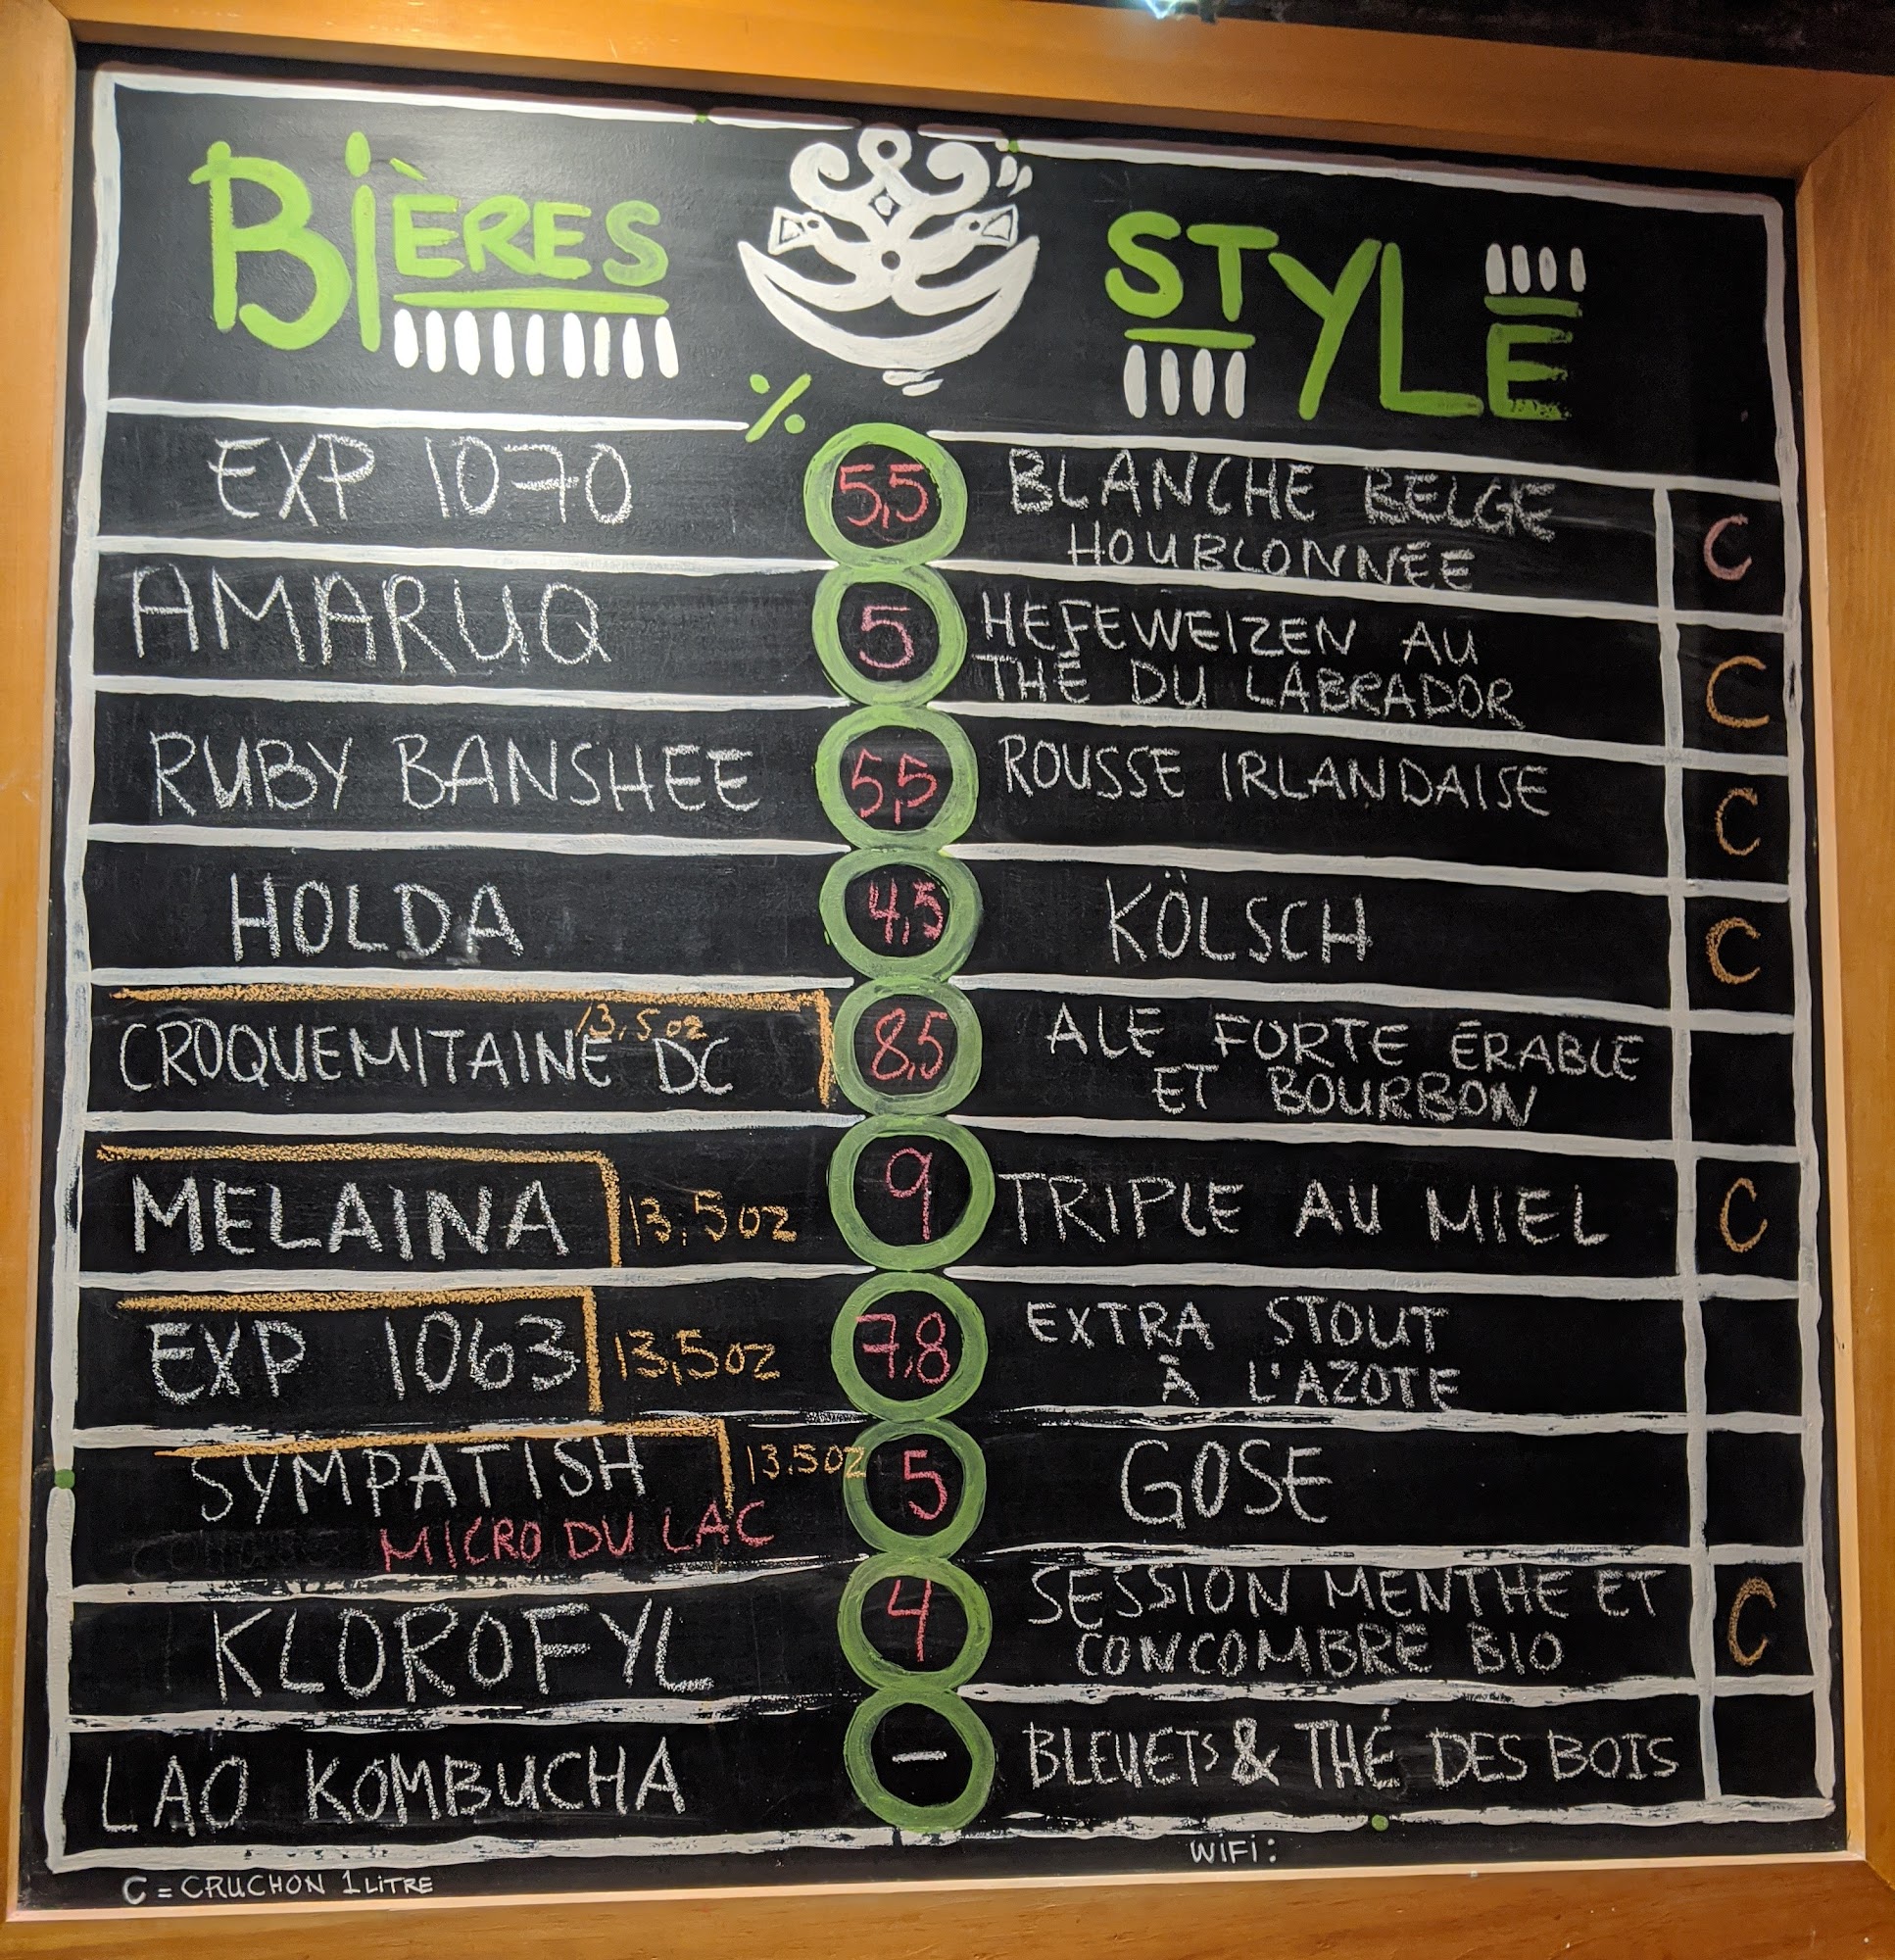 BIÈRES
STYLE
%
EXP 1070
5,5
BLANCHE BELGE
HOUBLONNÉE
C
AMARUQ
5
HEFEWEIZEN AU
THÉ DU LABRADOR
C
RUBY BANSHEE
5,5
ROUSSE IRLANDAISE
C
HOLDA
4,5
KÖLSCH
C
13,5oz
CROQUEMITAINE DC
8,5
ALE FORTE ÉRABLE
ET BOURBON
MELAINA
13,5oz
9
TRIPLE AU MIEL
C
EXP 1063
13,5oz
7,8
EXTRA STOUT
À L'AZOTE
SYMPATISH
13.5oz
MICRO DU LAC
5
GOSE
KLOROFYL
4
SESSION MENTHE ET
CONCOMBRE BIO
C
LAO KOMBUCHA
–
BLEUETS & THÉ DES BOIS
WiFi:
C = CRUCHON 1 LiTRE